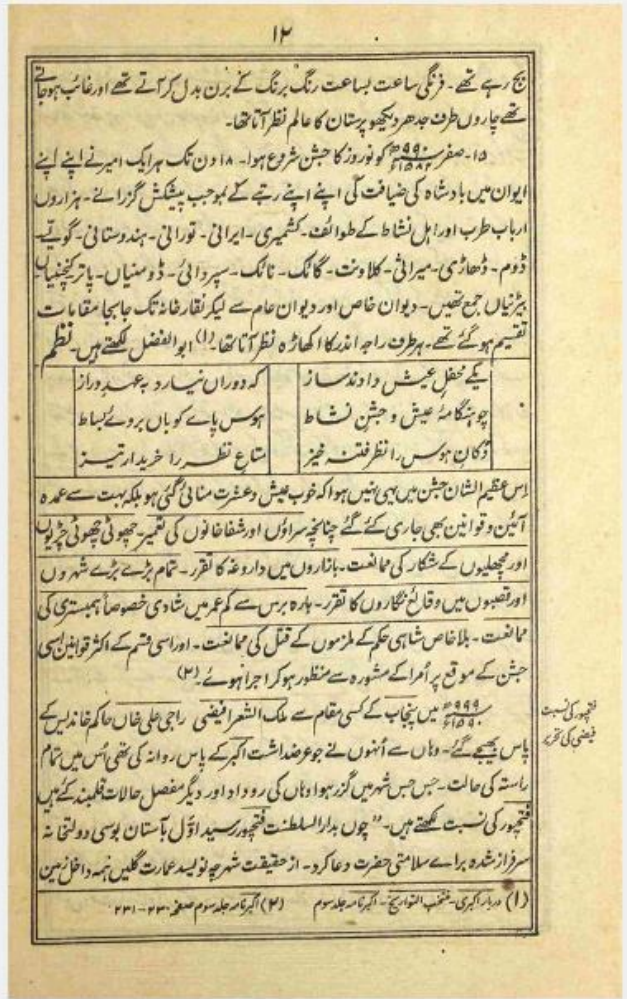 ۱۲
بج رہے تھے۔ فرنگی ساعت بساعت رنگ برنگ کے برن بدل کر آتے تھے اور غائب ہوجاتے
تھے چاروں طرف جدھر دیکھو پرستان کا عالم نظر آتا تھا۔
۱۵۔ صفر سنہ ۹۹۰ھ ۱۵۸۲ء کو نوروز کا جشن شروع ہوا۔ ۱۸ دن تک ہر ایک امیر نے اپنے اپنے
ایوان میں بادشاہ کی ضیافت کی اپنے اپنے رتبے کے بموجب پیشکش گزرانے۔ ہزاروں
ارباب طرب اور اہل نشاط کے طوائف۔ کشمیری۔ ایرانی۔ تورانی۔ ہندوستانی۔ گویّے۔
ڈوم۔ ڈھاڑی۔ میراثی۔ کلاونت۔ گائک۔ نائک۔ سپردائی۔ ڈومنیاں۔ پاتر کنچنیاں
بیڑنیاں جمع تھیں۔ دیوان خاص اور دیوان عام سے لیکر نقار خانہ تک جابجا مقامات
تقسیم ہوگئے تھے۔ ہر طرف راجہ اندر کا اکھاڑہ نظر آتا تھا۔ (۱) ابوالفضل لکھتے ہیں۔ نظم
یکے محفل عیش دادند ساز کہ دوراں نیارد بہ عہدِ دراز
چو ہنگامۂ عیش و جشن نشاط ہوس پاے کوباں بروے بساط
دُکانِ ہوس را نظر فتنہ خیز متاعِ نظر را خریدار تیز
اِس عظیم الشان جشن میں یہی نہیں ہوا کہ خوب عیش و عشرت منائی گئی ہو بلکہ بہت سے عمدہ
آئین و قوانین بھی جاری کئے گئے چنانچہ سراؤں اور شفاخانوں کی تعمیر۔ چھوٹی چھوٹی چڑیوں
اور مچھلیوں کے شکار کی ممانعت۔ بازاروں میں داروغہ کا تقرر۔ تمام بڑے بڑے شہروں
اور قصبوں میں وقائع نگاروں کا تقرر۔ بارہ برس سے کم عمر میں شادی خصوصاً ہمبستری کی
ممانعت۔ بلا خاص شاہی حکم کے ملزموں کے قتل کی ممانعت۔ اور اسی قسم کے اکثر قوانین اسی
جشن کے موقع پر اُمرا کے مشورہ سے منظور ہوکر اجرا ہوئے۔ (۲)
سنہ ۹۹۹ھ ۱۵۹۰ء میں پنجاب کے کسی مقام سے ملک الشعرا فیضی راجی علی خاں حاکم خاندیس کے
فتحپور کی نسبت
فیضی کی تحریر
پاس بھیجے گئے۔ وہاں سے اُنہوں نے جو عرضداشت اکبر کے پاس روانہ کی تھی اُس میں تمام
راستہ کی حالت۔ جس جس شہر میں گزر ہوا وہاں کی روداد اور دیگر مفصل حالات قلمبند کئے ہیں
فتحپور کی نسبت لکھتے ہیں۔ "چوں بدارالسلطنت فتحپور رسید اوّل بآستان بوسی دولتخانہ
سرفراز شدہ براے سلامتی حضرت دعا کرد۔ از حقیقت شہر چہ نویسد عمارت گلیں ہمہ داخل زمین
(۱) دربار اکبری۔ منتخب التواریخ۔ اکبرنامہ جلد سوم (۲) اکبرنامہ جلد سوم صفحہ ۲۳۰-۲۳۱